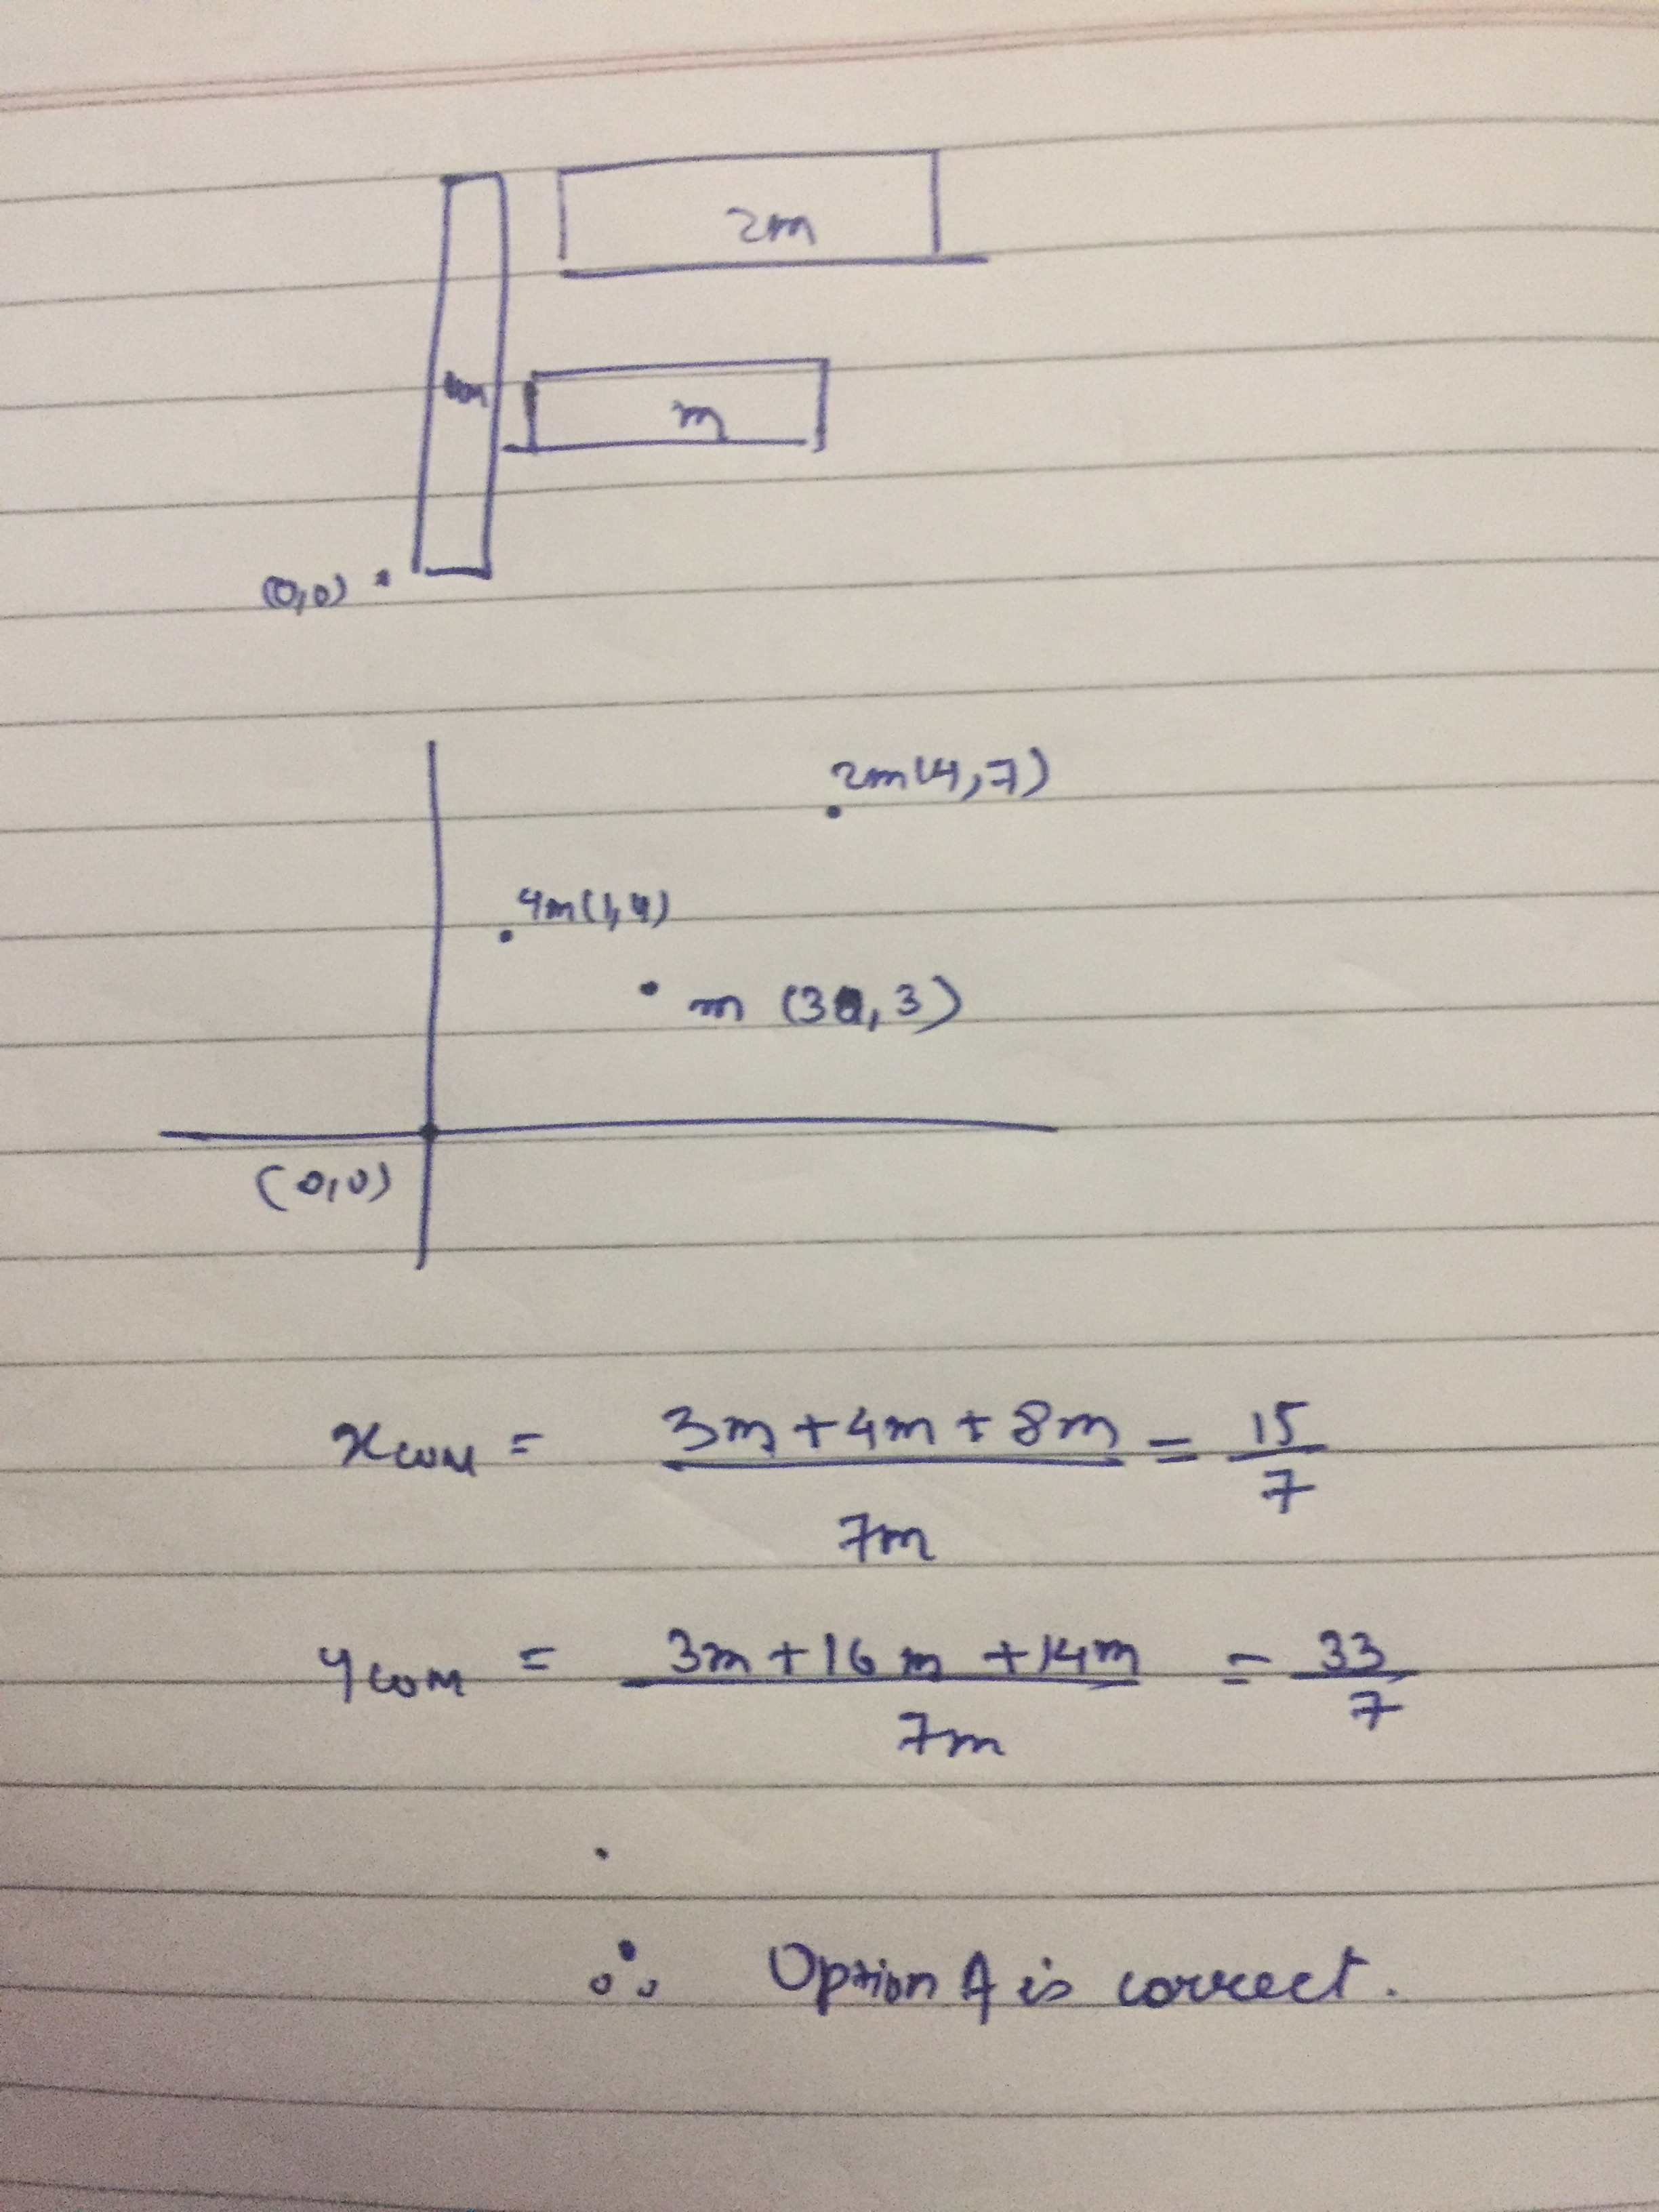 2m
4m
m
(0,0)
2m(4,7)
4m(1,4)
m (3, 3)
(0,0)
xCOM = 3m+4m+8m / 7m = 15/7
yCOM = 3m+16m+14m / 7m = 33/7
∴ Option A is correct.